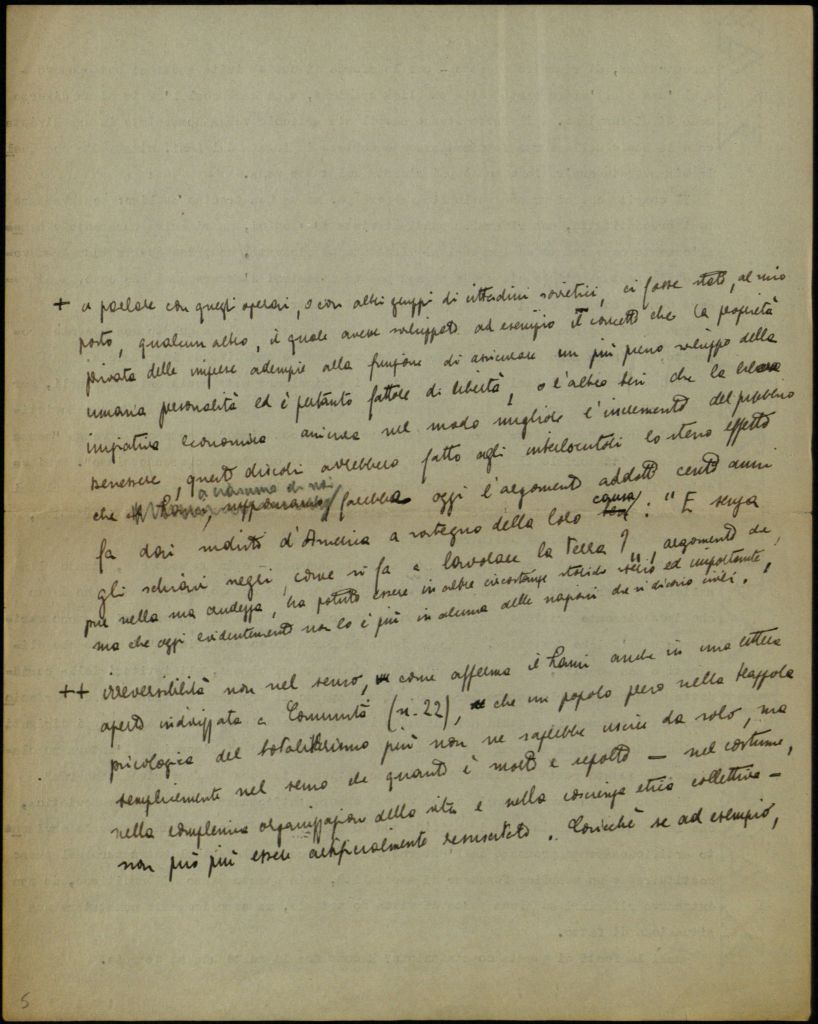 + a parlare con quegli operai, o con altri gruppi di cittadini sovietici, ci fosse stato, al mio
posto, qualcun altro, il quale avesse sviluppato ad esempio il concetto che la proprietà
privata delle imprese adempie alla funzione di assicurare un più pieno sviluppo della
umana personalità ed è pertanto fattore di libertà, o l'altro tesi che la libera
iniziativa economica assicura nel modo migliore l'incremento del pubblico
benessere, questi discorsi avrebbero fatto agli interlocutori lo stesso effetto
che a ciascuno di noi farebbe oggi l'argomento addotto cento anni
fa dai nudisti d'America a sostegno della loro causa: "E senza
gli schiavi negri, come si fa a lavorare la terra?", argomento che,
pur nella sua crudezza, ha potuto essere in altre circostanze storiche serio ed importante,
ma che oggi evidentemente non lo è più in alcuna delle nazioni che si dicono civili.
++ irreversibilità non nel senso, come afferma il Zanni anche in una lettera
aperta indirizzata a Comunità (n. 22), che un popolo preso nella trappola
psicologica del totalitarismo più non ne saprebbe uscire da solo, ma
semplicemente nel senso che quanto è morto e sepolto — nel costume,
nella complessiva organizzazione della vita e nella coscienza etica collettiva —
non può più essere artificialmente resuscitato. Cosicché se ad esempio,
5